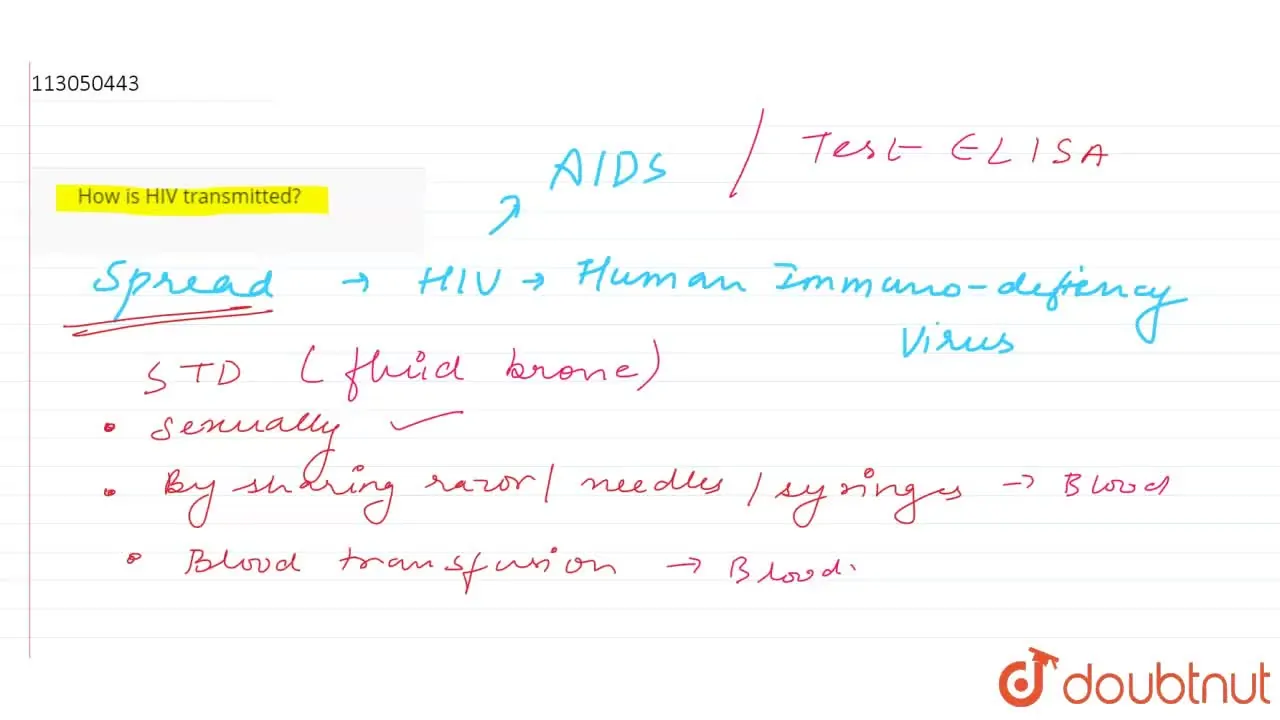 113050443
AIDS / Test ELISA
How is HIV transmitted?
Spread → HIV → Human Immuno-defiency
Virus
STD (fluid brone)
• Sexually ✓
• By sharing razor / needles / syringes → Blood
• Blood transfusion → Blood.
doubtnut